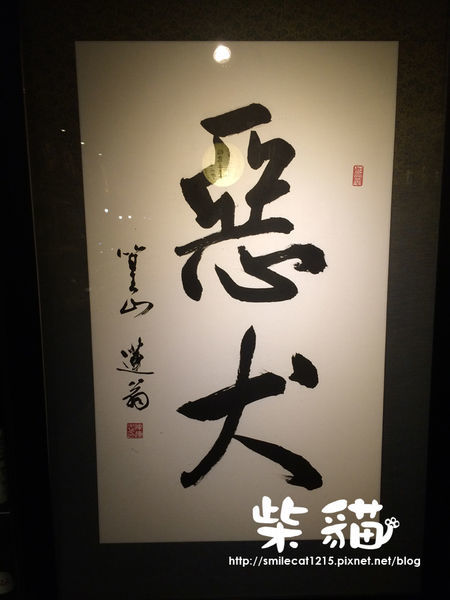 惡犬
蓮翁
柴貓
http://smilecat1215.pixnet.net/blog